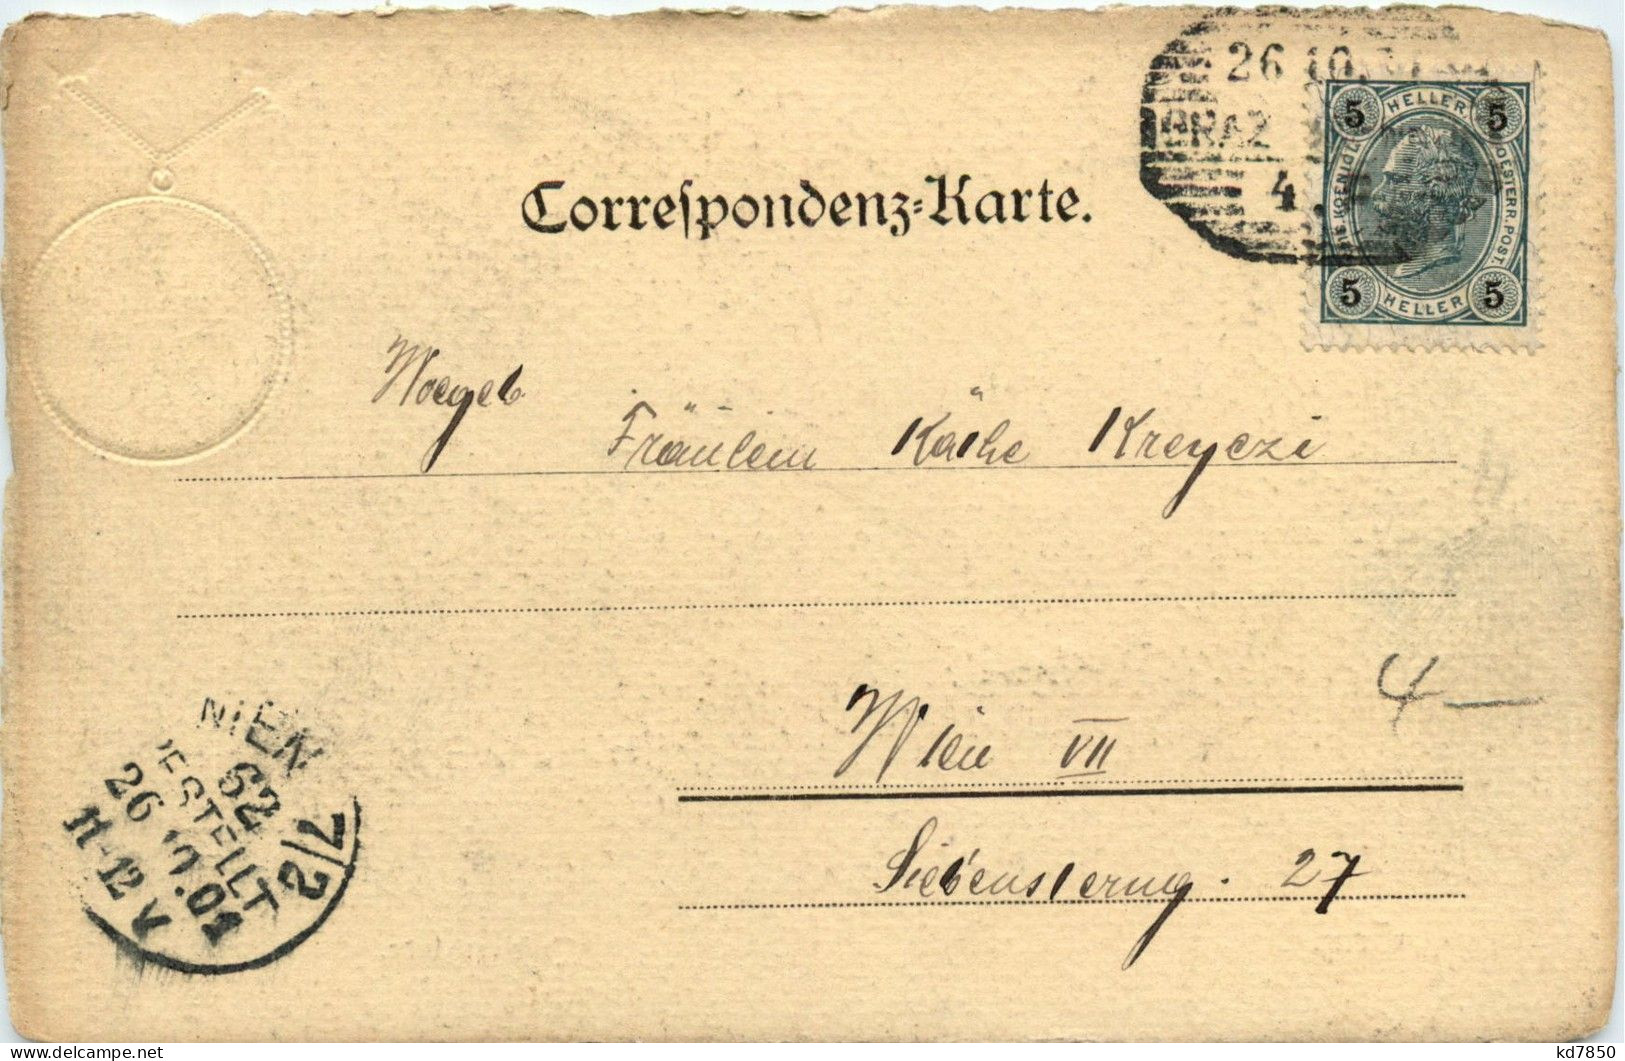 26 10. 01
GRAZ
4
5 HELLER 5
KAIS. KOENIGL. OESTERR. POST.
5 HELLER 5
Correspondenz-Karte.
Fräulein Käthe Kreyczi
Wien VII
4 —
27
WIEN
7/2
62
BESTELLT
26 10.01
11-12 V
kd7850